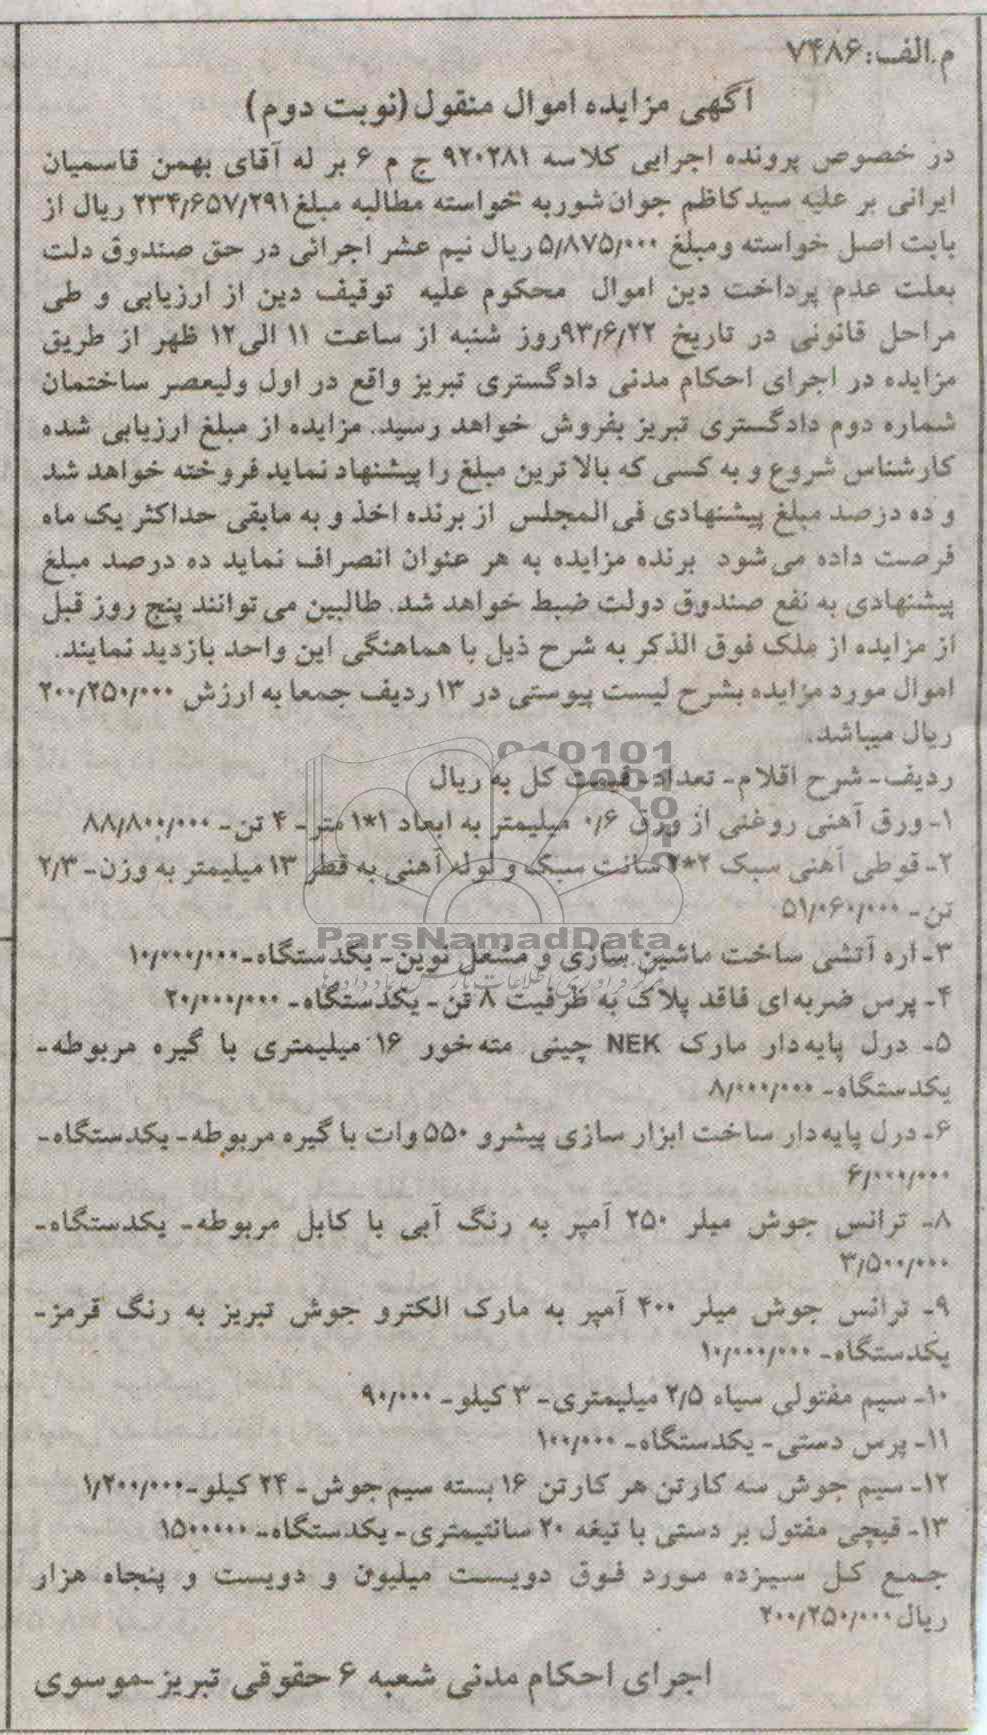 م.الف:۷۴۸۶
آگهی مزایده اموال منقول(نوبت دوم)
در خصوص پرونده اجرایی کلاسه ۹۲۰۲۸۱ ج م ۶ بر له آقای بهمن قاسمیان
ایرانی بر علیه سیدکاظم جوان شوربه خواسته مطالبه مبلغ۲۳۴٫۶۵۷٫۲۹۱ ریال از
بابت اصل خواسته ومبلغ ۵٫۸۷۵٫۰۰۰ریال نیم عشر اجرائی در حق صندوق دلت
بعلت عدم پرداخت دین اموال محکوم علیه توقیف دین از ارزیابی و طی
مراحل قانونی در تاریخ ۹۳٫۶٫۲۲روز شنبه از ساعت ۱۱ الی۱۲ ظهر از طریق
مزایده در اجرای احکام مدنی دادگستری تبریز واقع در اول ولیعصر ساختمان
شماره دوم دادگستری تبریز بفروش خواهد رسید. مزایده از مبلغ ارزیابی شده
کارشناس شروع و به کسی که بالاترین مبلغ را پیشنهاد نماید فروخته خواهد شد
و ده درصد مبلغ پیشنهادی فی المجلس از برنده اخذ و به مابقی حداکثر یک ماه
فرصت داده می شود برنده مزایده به هر عنوان انصراف نماید ده درصد مبلغ
پیشنهادی به نفع صندوق دولت ضبط خواهد شد. طالبین می توانند پنج روز قبل
از مزایده از ملک فوق الذکر به شرح ذیل با هماهنگی این واحد بازدید نمایند.
اموال مورد مزایده بشرح لیست پیوستی در ۱۳ ردیف جمعا به ارزش ۲۰۰٫۲۵۰٫۰۰۰
ریال میباشد.
ردیف- شرح اقلام- تعداد- قیمت کل به ریال
۱- ورق آهنی روغنی از ورق ۰٫۶ میلیمتر به ابعاد ۱*۱ متر- ۴ تن- ۸۸٫۸۰۰٫۰۰۰
۲- قوطی آهنی سبک ۲*۲ سانت سبک و لوله آهنی به قطر ۱۳ میلیمتر به وزن- ۲٫۳
تن- ۵۱٫۰۶۰٫۰۰۰
ParsNamadData
۳- اره آتشی ساخت ماشین سازی و مشعل نوین- یکدستگاه-۱۰٫۰۰۰٫۰۰۰
۴- پرس ضربه ای فاقد پلاک به ظرفیت ۸ تن- یکدستگاه- ۲۰٫۰۰۰٫۰۰۰
۵- درل پایه دار مارک NEK چینی مته خور ۱۶ میلیمتری با گیره مربوطه-
یکدستگاه- ۸٫۰۰۰٫۰۰۰
۶- درل پایه دار ساخت ابزار سازی پیشرو ۵۵۰ وات با گیره مربوطه- یکدستگاه-
۶٫۰۰۰٫۰۰۰
۸- ترانس جوش میلر ۲۵۰ آمپر به رنگ آبی با کابل مربوطه- یکدستگاه-
۳٫۵۰۰٫۰۰۰
۹- ترانس جوش میلر ۴۰۰ آمپر به مارک الکترو جوش تبریز به رنگ قرمز-
یکدستگاه- ۱۰٫۰۰۰٫۰۰۰
۱۰- سیم مفتولی سیاه ۲٫۵ میلیمتری- ۳ کیلو- ۹۰٫۰۰۰
۱۱- پرس دستی- یکدستگاه- ۱۰۰٫۰۰۰
۱۲- سیم جوش سه کارتن هر کارتن ۱۶ بسته سیم جوش- ۲۴ کیلو-۱٫۲۰۰٫۰۰۰
۱۳- قیچی مفتول بر دستی با تیغه ۲۰ سانتیمتری- یکدستگاه- ۱۵۰۰۰۰۰
جمع کل سیزده مورد فوق دویست میلیون و دویست و پنجاه هزار
ریال۲۰۰٫۲۵۰٫۰۰۰
اجرای احکام مدنی شعبه ۶ حقوقی تبریز-موسوی